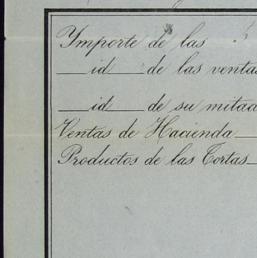 Ymporte de las
id de las ventas
id de su mitad
Ventas de Hacienda
Productos de las Tortas